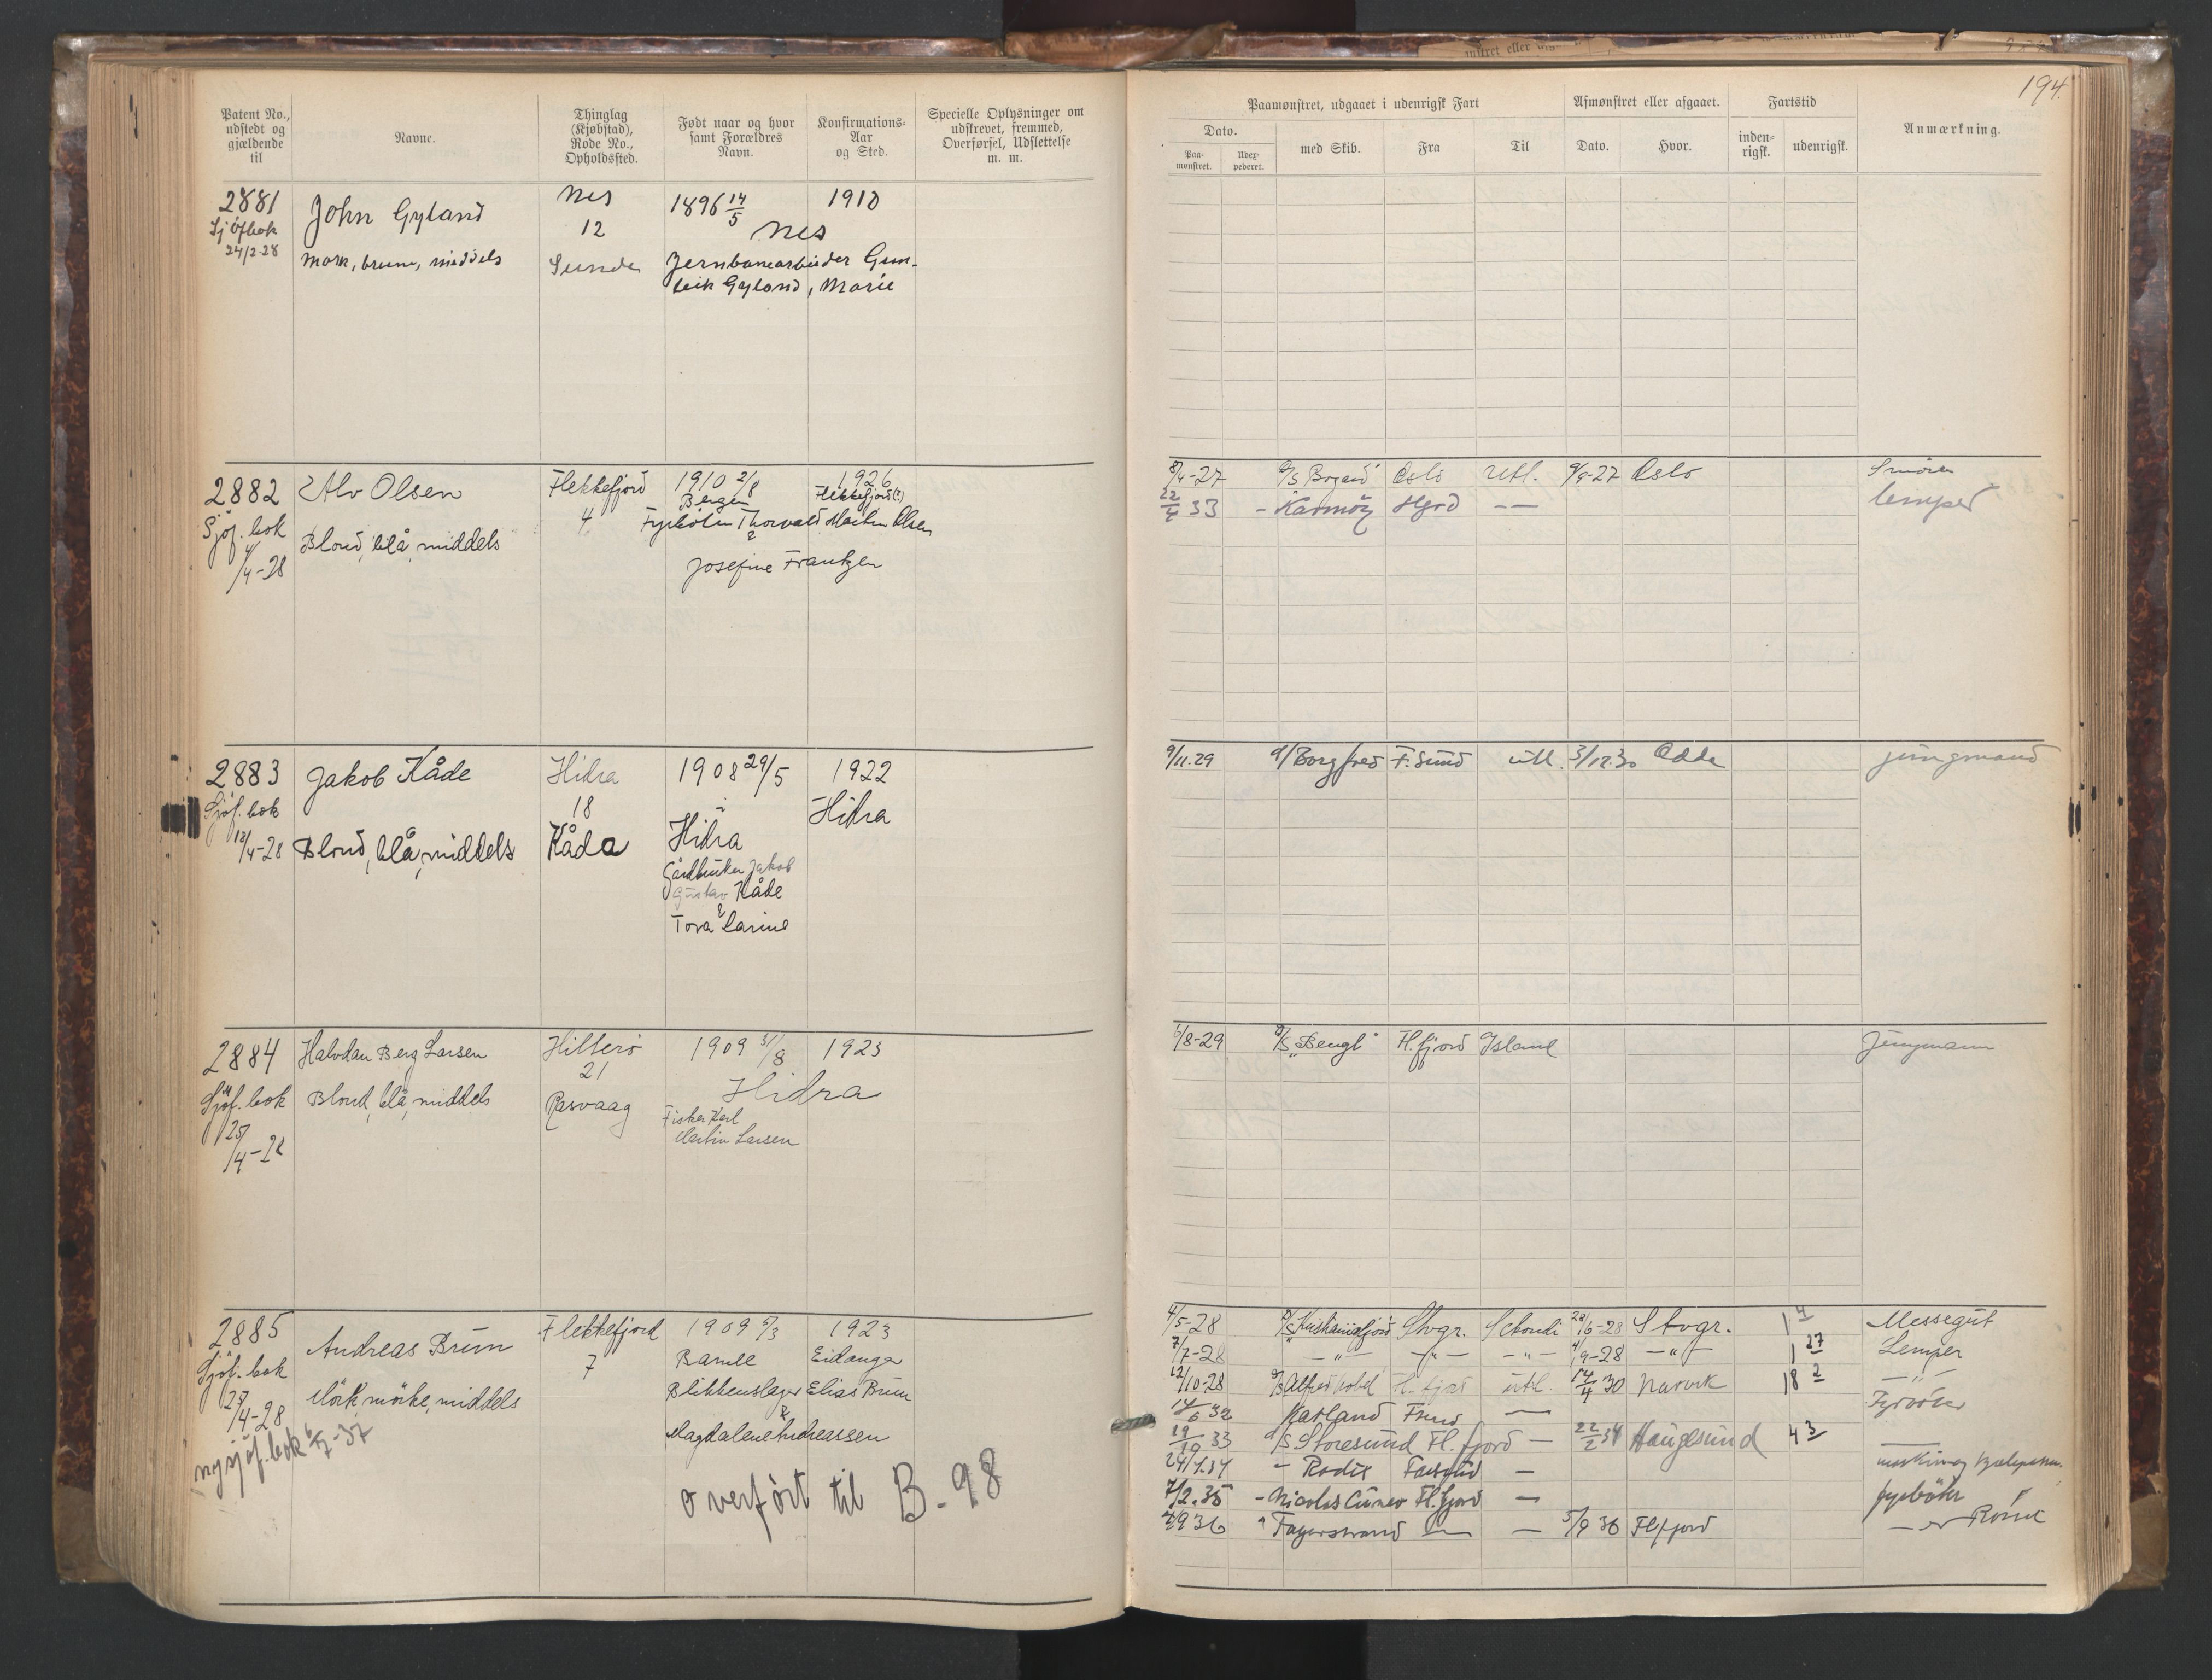 194
Patent No., udstedt og gjældende til
Navne.
Thinglag (Kjøbstad), Rode No., Opholdssted.
Født naar og hvor samt Forældres Navn.
Konfirmations-Aar og Sted.
Specielle Oplysninger om udskrevet, fremmed, Overførsel, Udslettelse m. m.
Paamønstret, udgaaet i udenrigsk Fart
Afmønstret eller afgaaet.
Fartstid
Anmærkning.
Dato.
Paa-mønstret.
Udex-pederet.
med Skib.
Fra
Til
Dato.
Hvor.
inden-rigsk.
udenrigsk.
2881 John Gyland Nes 1896 14/5 1910
Sjöfbok 12 Nes
24/2-28 Mørk, brune, middels Sunde Jernbanearbeider Gun-
leik Gyland, Marie
2882 Alv Olsen Flekkefjord 1910 2/8 1926
Bergen Flekkefjord (?)
Sjöf. bok 4 Fyrböter Thorvald Martin Olsen
Blond, blå, middels &
/4-28 Josefine Frantzen
8/4-27 D/S Brgand Oslo utl. 9/9-27 Oslo Smörer
22/4 33 - Karmöy Hgsd — lemper
2883 Jakob Kåde Hidra 1908 29/5 1922
Sjöf. bok 18 Hidra
18/4-28 Blond, blå, middels Kåda Hidra
Gårdbruker Jakob
Gustav Kåde
&
Tora Larine
9/11.29 D/ Borgfred F.sund utl. 3/12.30 Odda jungmand
2884 Halvdan Berg Larsen Hitterö 1909 31/8 1923
21 Hidra
Sjöf. bok Blond, blå, middels Rasvaag
Fisker Karl
25/4-28 Martin Larsen
6/8-29 D/S "Bengt" Fl.fjord Island Jungmann
2885 Andreas Brun Flekkefjord 1909 5/3 1923
Sjöf. bok 7 Bamle Eidanger
Mörk, mörke, middels Blikkenslager Elias Brun
27/4-28 &
Magdalene Andreassen
ny sjöf. bok 37
overført til B-98
4/5-28 D/S Kristianiafjord Stvgr. 28/6-28 Stvgr. 1 Messegut
7/7-28 —"— —"— —"— 9-28 —"— 1 27 Lemper
12/10-28 D/S Alfred Nobel Fl.fjord utl. 14/4 30 Narvik 18 2 —"—
14/6 32 Katland Fsund — Fyrböter
19/10 33 D/S Storesund Fl.fjord — 22/2 34 Haugesund 4 3 —
24/7.34 - Rodis Farsund —
7/2.35 - Nicolas Cuneo Fl.fjord — fyrböter
936 " Fagerstrand — — 5/9 36 Flfjord